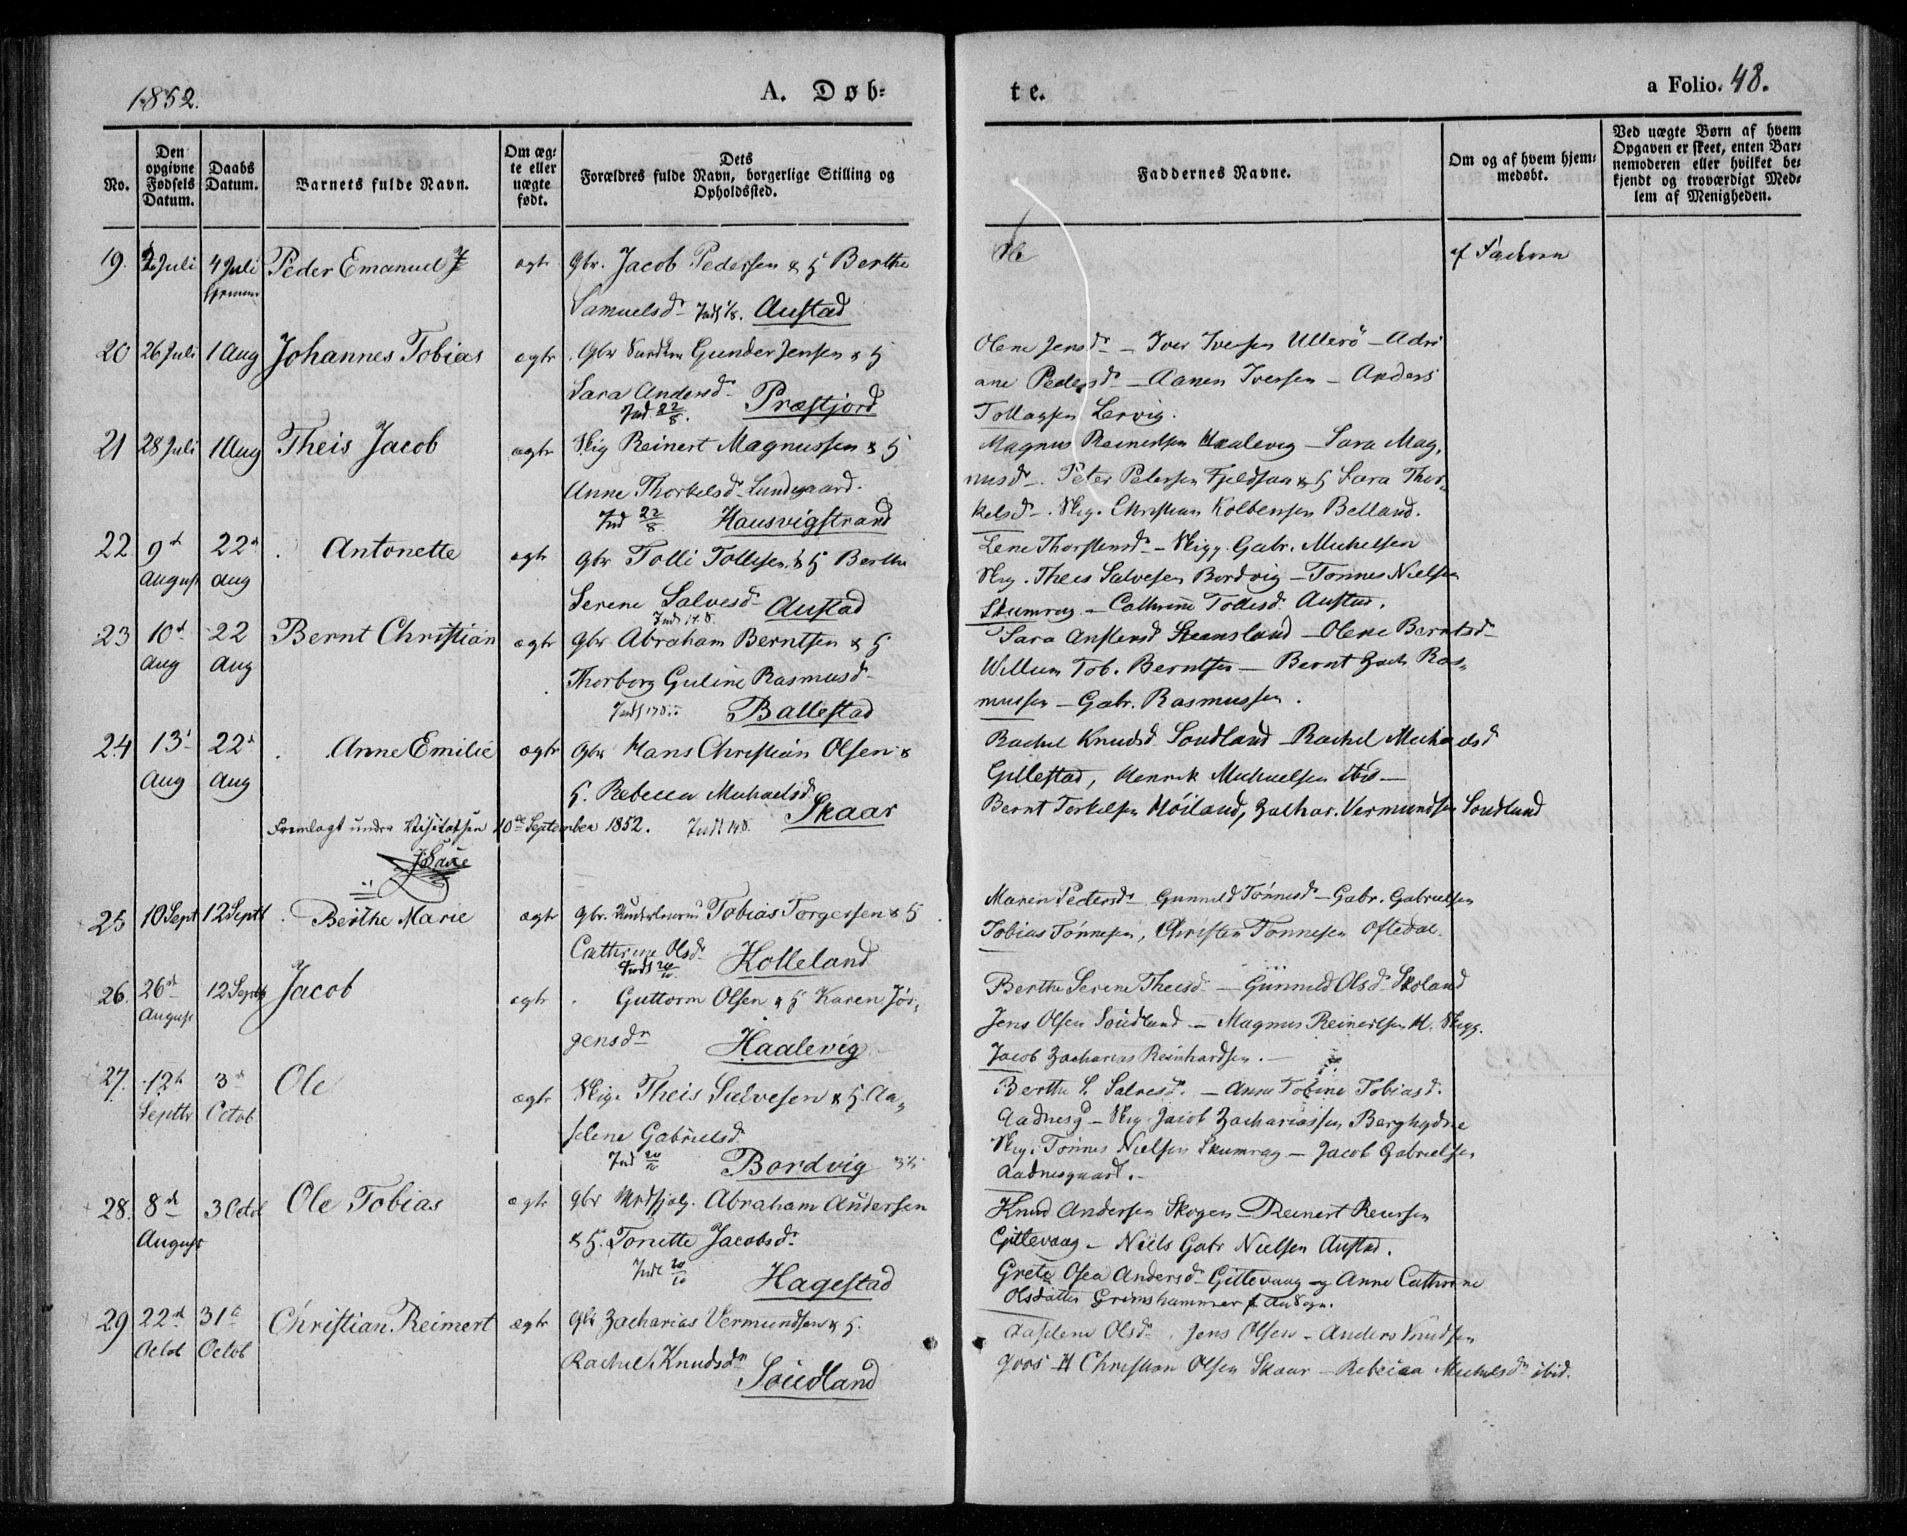 1852.
A. Døb-
te.
a Folio. 48.
No.
Den
opgivne
Fødsels
Datum.
Daabs
Datum.
Barnets fulde Navn.
Om æg-
te eller
uægte
født.
Dets
Forældres fulde Navn, borgerlige Stilling og
Opholdssted.
Faddernes Navne.
Om og af hvem hjem-
medøbt.
Ved uægte Børn af hvem
Opgaven er skeet, enten Bar-
nemoderen eller hvilket be-
kjendt og troværdigt Med-
lem af Menigheden.
19. 2 Juli 4 Juli Peder Emanuel ægte Gbr. Jacob Pedersen & H Berthe
Samuelsd. Austad
af Faderen
20 26 Juli 1 Aug Johannes Tobias ægte Gbr Gunder Jensen & H
Sara Andersd. Præstjord
Ind 22/8.
Olene Jensd. – Iver Iversen Ullerö – Adri
ane Pedersd. – Aanen Iversen – Anders
Tollagsen Lervig.
21 28 Juli 1 Aug Theis Jacob ægte Skig Reinert Magnussen & H
Anne Thorkelsd. Lundegaard.
Ind 22/8 Hausvigstrand
Magnus Reinertsen Haalevig – Sara Mag-
nusd. Peter Petersen Fjeldsaa & H Sara Thor-
kelsd. Skig. Christian Kolbensen Belland.
22 9d August 22d Aug Antonette ægte Gbr Tolli Tollisen & H Berthe
Serene Salvesd. Austad
Lene Thorstensd. – Skigg. Gabr. Michelsen
Skig. Theis Salvesen Bordvig – Tonnes Nielsen
Skumrag – Cathrine Tollesd. Austad.
23 10d Aug 22 Aug Bernt Christian ægte Gbr Abraham Berntsen & H
Thorborg Guline Rasmusd.
Ballestad
Sara Austensd Steensland – Olene Berntsd.
Willum Tob. Berntsen – Bernt Zach Ras-
mussen – Gabr. Rasmussen.
24 13d Aug 22d Aug Anne Emilie ægte Gbr Hans Christian Olsen &
H. Rebecca Michaelsd. Skaar
Rachel Knudsd. Soudland – Rachel Michaelsd
Gillestad, Henrik Michaelsen ibid –
Bernt Torkelsen Höiland, Zachar. Vermundsen Soudland
Fremlagt under Visitatsen 10de September 1852.
25 10 Sept 12 Septr Berthe Marie ægte Gbr. Tobias Torgersen & H
Cathrine Olsd. Kolleland
Maren Pedersd. Gunnild Tönnesd. – Gabr. Gabrielsen
Tobias Tönnesen, Christen Tönnesen Oftedal.
26. 26d August 12 Septr Jacob ægte Guttorm Olsen & H Karen Jör-
gensd. Haalevig
Berthe Serene Theisd. – Gunnild Olsd. Skoland
Jens Olsen Soudland – Magnus Reinertsen H. Skigg.
Jacob Zacharias Reinhardsen.
27. 12t Septbr 3d Octob Ole ægte Skig. Theis Salvesen & H. Aa-
selene Gabrielsd.
Bordvig
Berthe S. Salvesd. – Anne Tobine Tobiasd.
Aadnesg. – Skig. Jacob Zachariassen Berghydne
Skig. Tönnes Nielsen Skumrag – Jacob Gabrielsen
Aadnesgaard.
28. 8d August 3 Octob Ole Tobias ægte Gbr Abraham Andersen
& H. Tonette Jacobsd.
Hagestad
Knud Andersen Skogen – Reinert Reiersen
Gittevaag – Niels Gabr Nielsen Austad.
Grete Osea Andersd. Gittevaag og Anne Cathrine
Olsdatter Grimshammer
29 22d Octob 31t Octob Christian Reimert ægte Gbr Zacharias Vermundsen & H.
Rachel Knudsd. Soudland
Aaselene Olsd. Jens Olsen – Anders Knudsen
Goos – H Christian Olsen Skaar – Rebecca Michelsd. ibid.